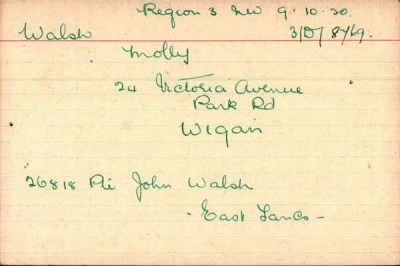 Region 3 NW 9.10.20.
Walsh 3/D/8469.
Molly
24 Victoria Avenue
Park Rd
Wigan
26818 Pte John Walsh
- East Lancs -